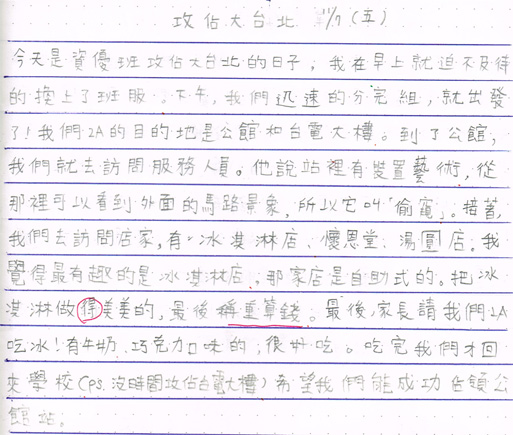 攻佔大台北 11/7 (五)
今天是資優班攻佔大台北的日子，我在早上就迫不及待
的換上了班服。下午，我們迅速的分完組，就出發
了！我們2A的目的地是公館和台電大樓。到了公館，
我們就去訪問服務人員。他說站裡有裝置藝術，從
那裡可以看到外面的馬路景象，所以它叫「偷窺」。接著，
我們去訪問店家，有：冰淇淋店、懷恩堂、湯圓店。我
覺得最有趣的是冰淇淋店，那家店是自助式的。把冰
淇淋做得美美的，最後稱重算錢。最後，家長請我們2A
吃冰！有牛奶、巧克力口味的，很好吃。吃完我們才回
來學校(ps.沒時間攻佔台電大樓)希望我們能成功佔領公
館站。